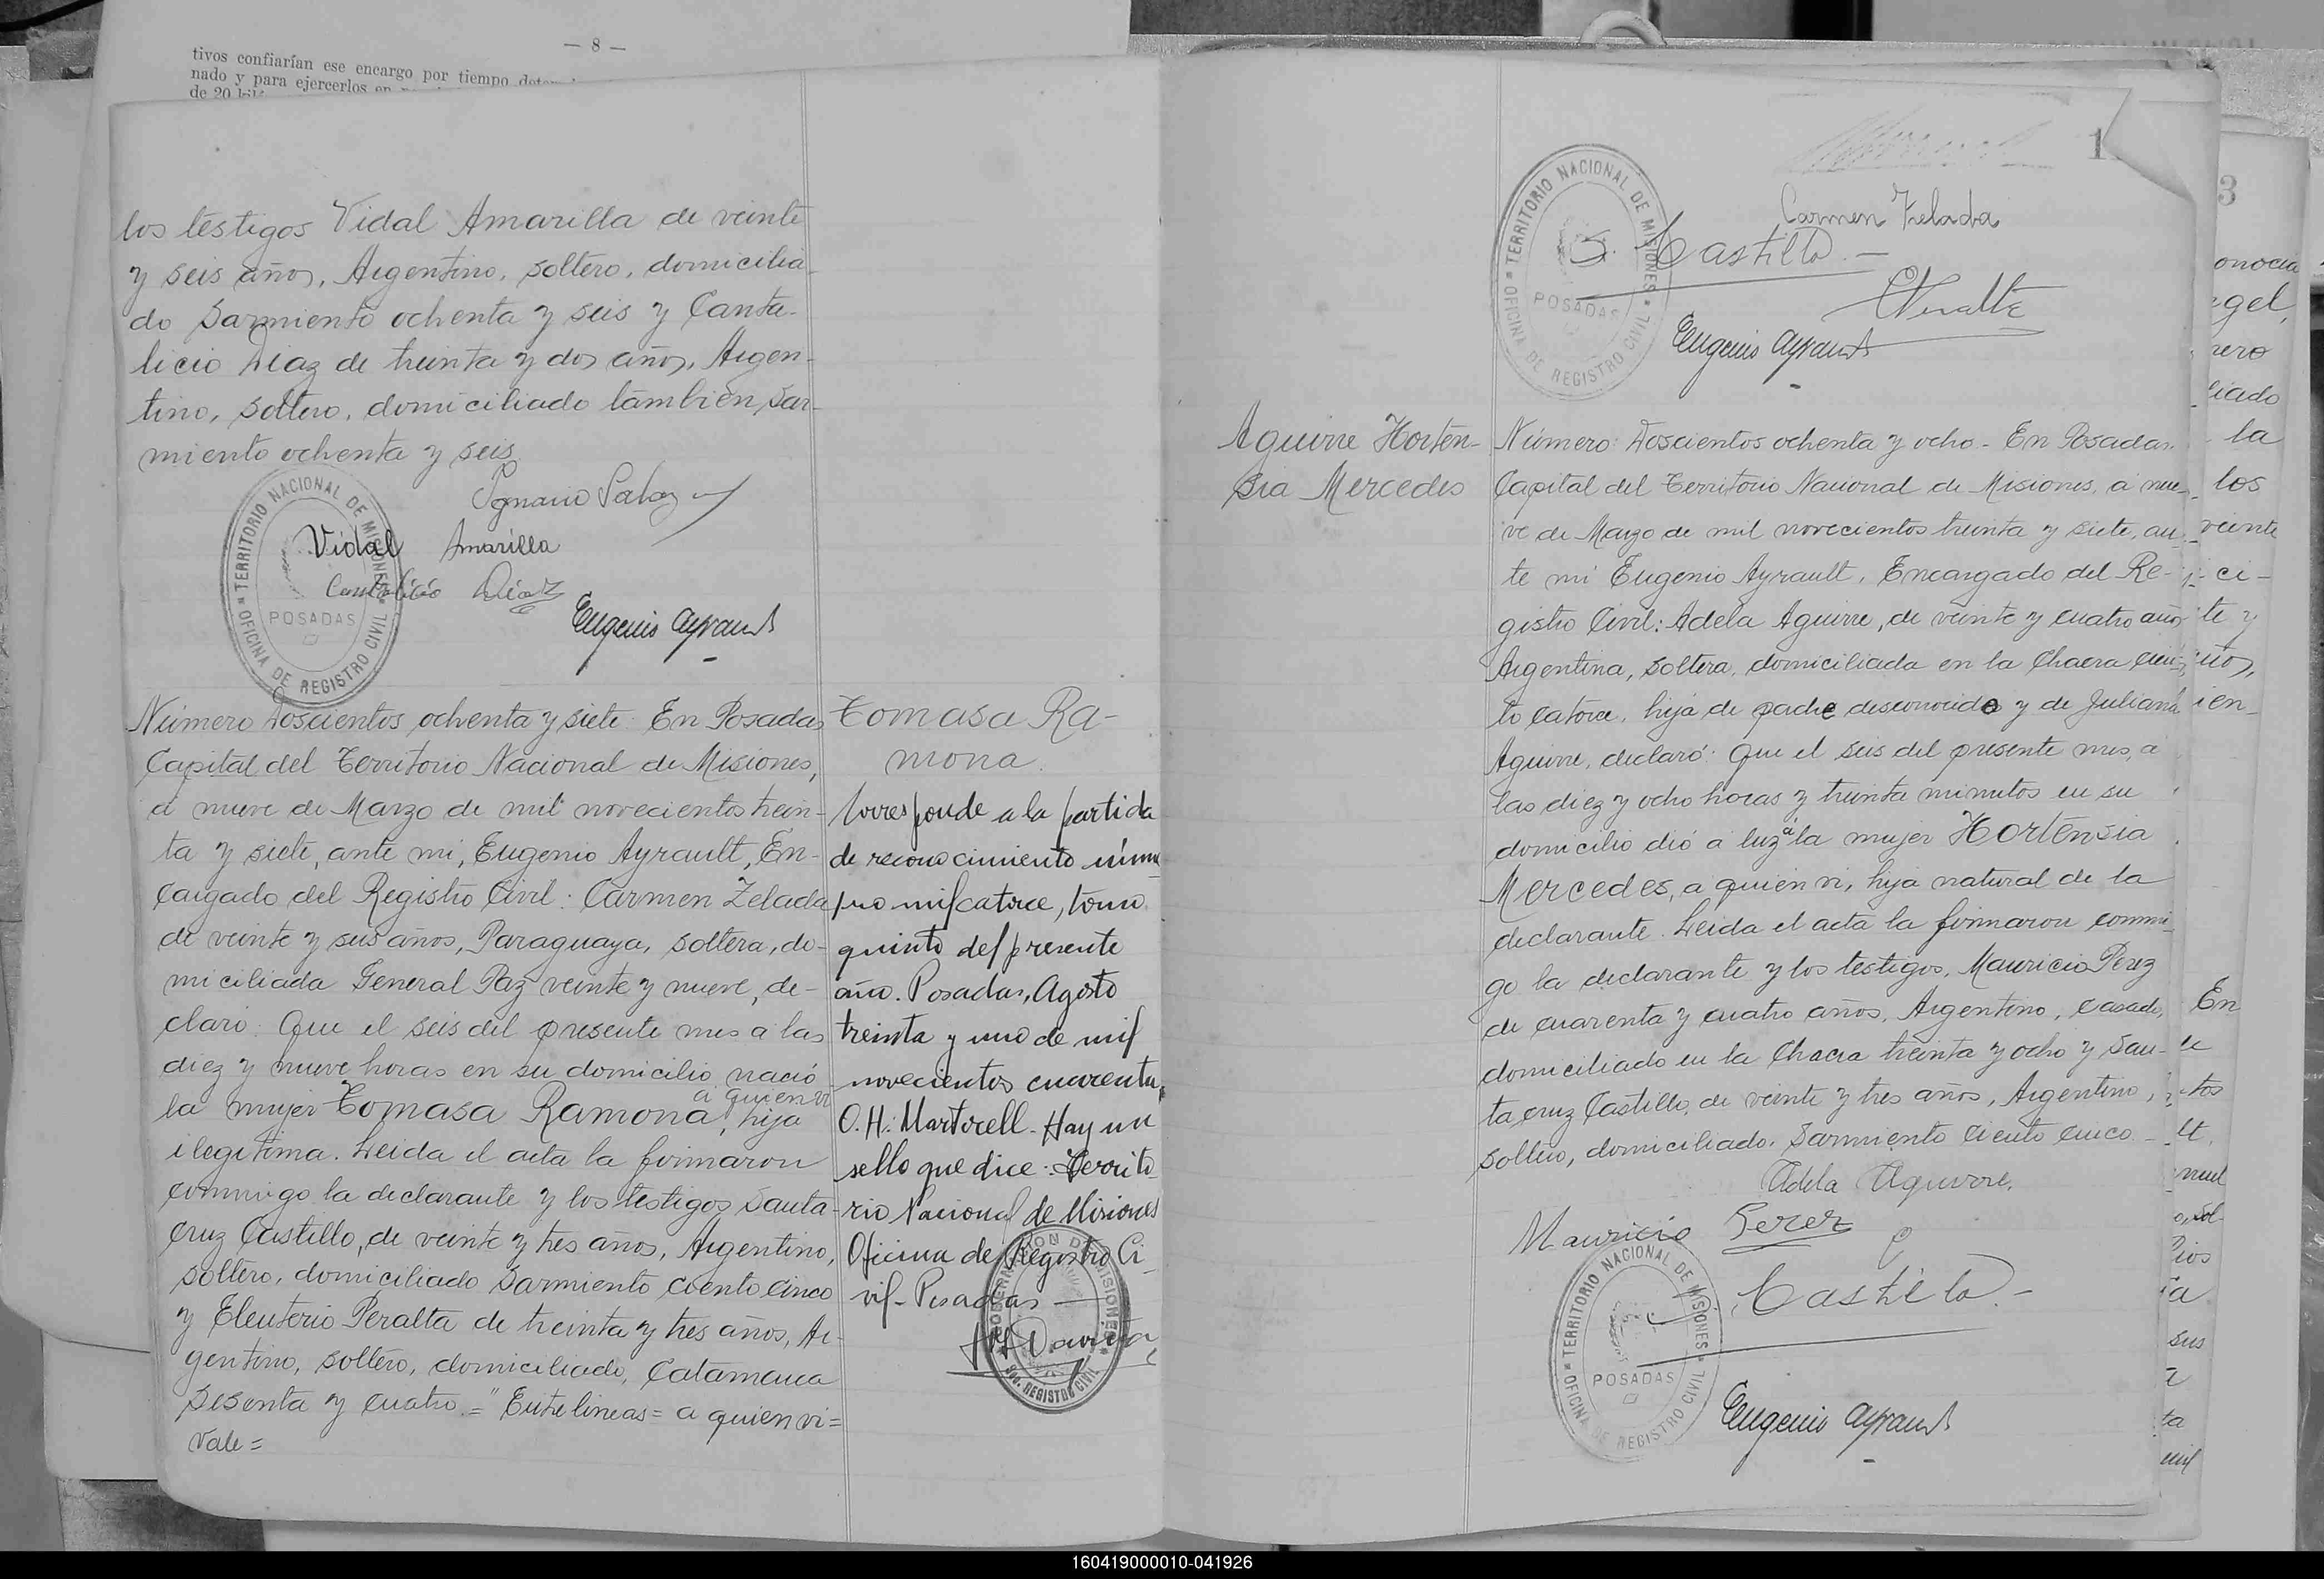 — 8 —
tivos confiarían ese encargo por tiempo
nado y para ejercerlos en
de 20
los testigos Vidal Amarilla de veinte
y seis años, Argentino, soltero, domicilia-
do Sarmiento ochenta y seis y Canta-
licio Diaz de treinta y dos años, Argen-
tino, soltero, domiciliado también, Sar-
miento ochenta y seis
Vidal Amarilla
Cantalicio Diaz
Eugenio Ayrault
TERRITORIO NACIONAL DE MISIONES
POSADAS
OFICINA DE REGISTRO CIVIL
Número Doscientos ochenta y siete: En Posadas
Capital del Territorio Nacional de Misiones,
a nueve de Marzo de mil novecientos trein-
ta y siete, ante mi, Eugenio Ayrault, En-
cargado del Registro Civil: Carmen Zelada
de veinte y seis años, Paraguaya, soltera, do-
miciliada General Paz veinte y nueve, de-
claró: Que el seis del presente mes a las
diez y nueve horas en su domicilio nació
a quien vi
la mujer Tomasa Ramona, hija
ilegitima. Leida el acta la firmaron
conmigo la declarante y los testigos Santa-
cruz Castillo, de veinte y tres años, Argentino,
soltero, domiciliado Sarmiento ciento cinco
y Eleuterio Peralta de treinta y tres años, Ar-
gentino, soltero, domiciliado, Catamarca
sesenta y cuatro.="Entre lineas= a quien vi=
Vale=
Tomasa Ra-
mona.
Corresponde a la partida
de reconocimiento núme
ro mil catorce, tomo
quinto del presente
año. Posadas, Agosto
treinta y uno de mil
novecientos cuarenta.
O.H. Martorell - Hay un
sello que dice: Territo-
rio Nacional de Misiones
Oficina de Registro Ci-
vil - Posadas —
REGISTRO CIVIL
Carmen Zelada
S. Castillo.—
EPeralta
Eugenio Ayrault
TERRITORIO NACIONAL DE MISIONES
POSADAS
OFICINA DE REGISTRO CIVIL
Aguirre Horten-
sia Mercedes
Número: Doscientos ochenta y ocho - En Posadas
Capital del Territorio Nacional de Misiones, a nue-
ve de Marzo de mil novecientos treinta y siete, an-
te mi Eugenio Ayrault, Encargado del Re-
gistro Civil: Adela Aguirre, de veinte y cuatro años
Argentina, soltera, domiciliada en la Chacra cien-
to catorce, hija de padre desconocido y de Juliana
Aguirre, declaró: Que el seis del presente mes, a
las diez y ocho horas y treinta minutos en su
domicilio dió a luz á la mujer Hortensia
Mercedes, a quien vi, hija natural de la
declarante. Leida el acta la firmaron conmi-
go la declarante y los testigos, Mauricio Perez
de cuarenta y cuatro años, Argentino, casado,
domiciliado en la Chacra treinta y ocho y San-
ta cruz Castillo, de veinte y tres años, Argentino,
soltero, domiciliado. Sarmiento ciento cinco -
Adela Aguirre.
Mauricio Perez
S. Castillo.-
TERRITORIO NACIONAL DE MISIONES
POSADAS
OFICINA DE REGISTRO CIVIL
Eugenio Ayrault
3
la
los
veinte
ci-
te y
En
160419000010-041926